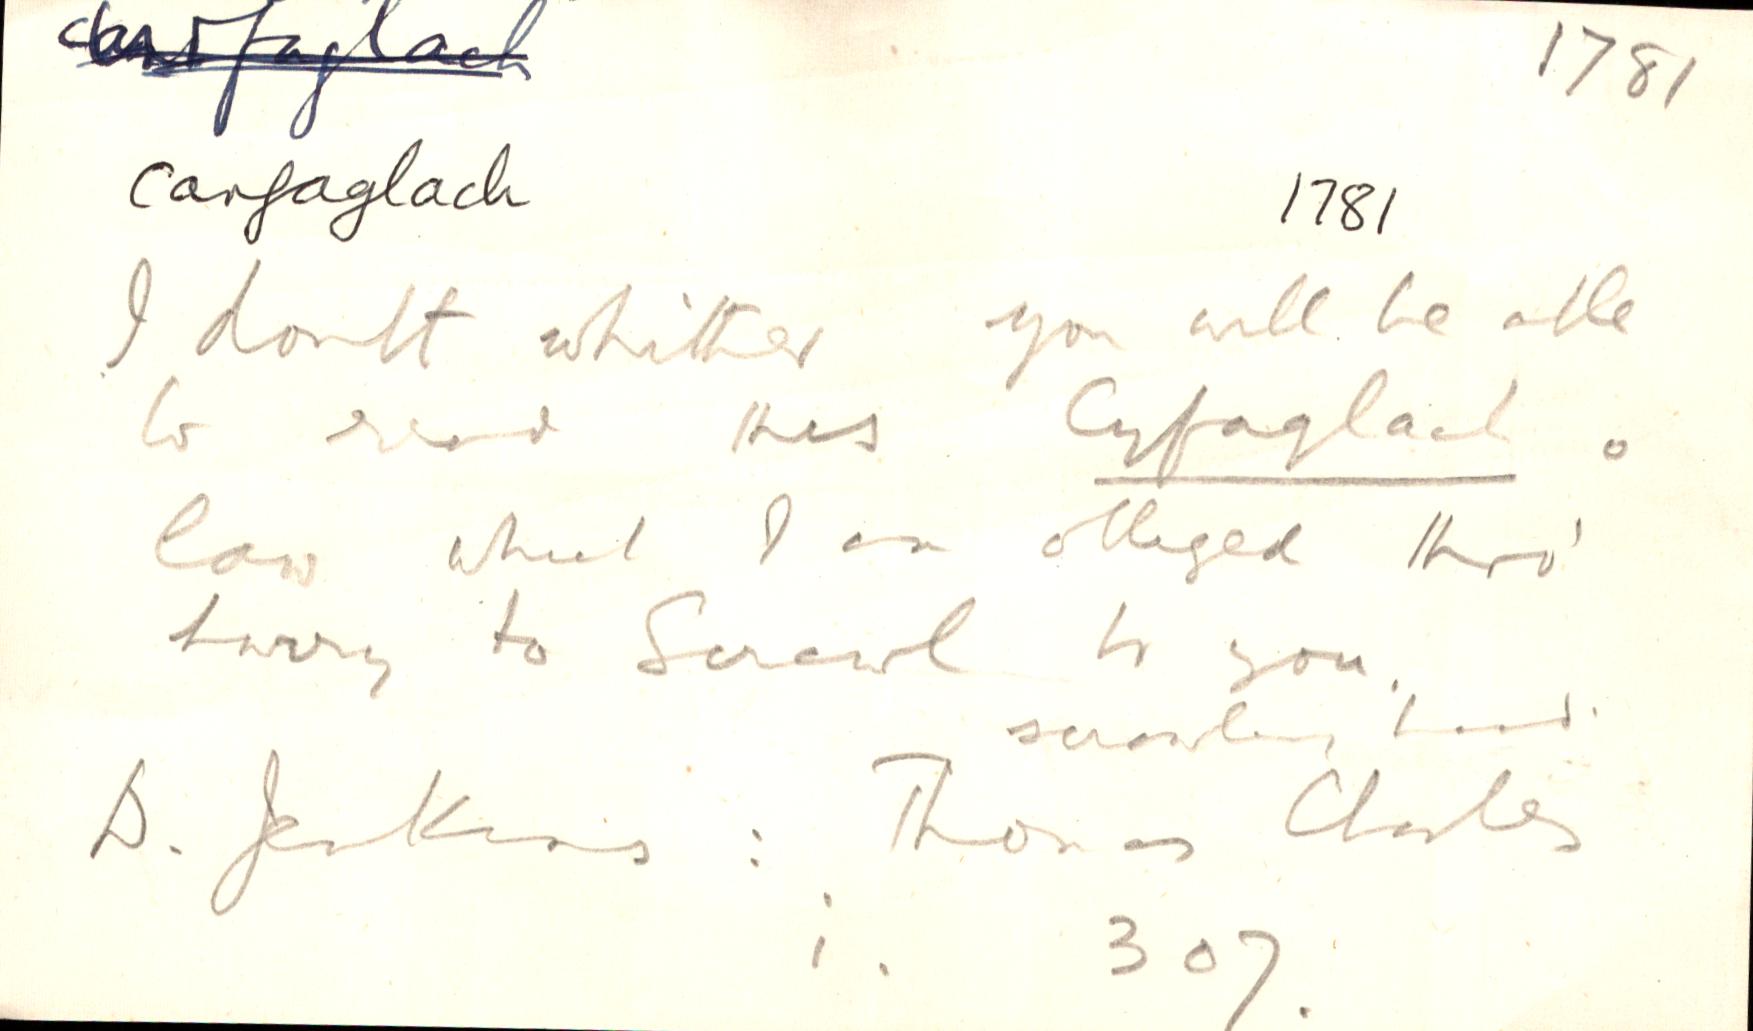 carfaglach 1781
carfaglach 1781
I doubt whither you will be able
to read this Cyfaglach o
law what I am obliged thro'
hurry to Scrawl to you.
scrawling hand.
D. Jenkins : Thomas Charles
i. 307.